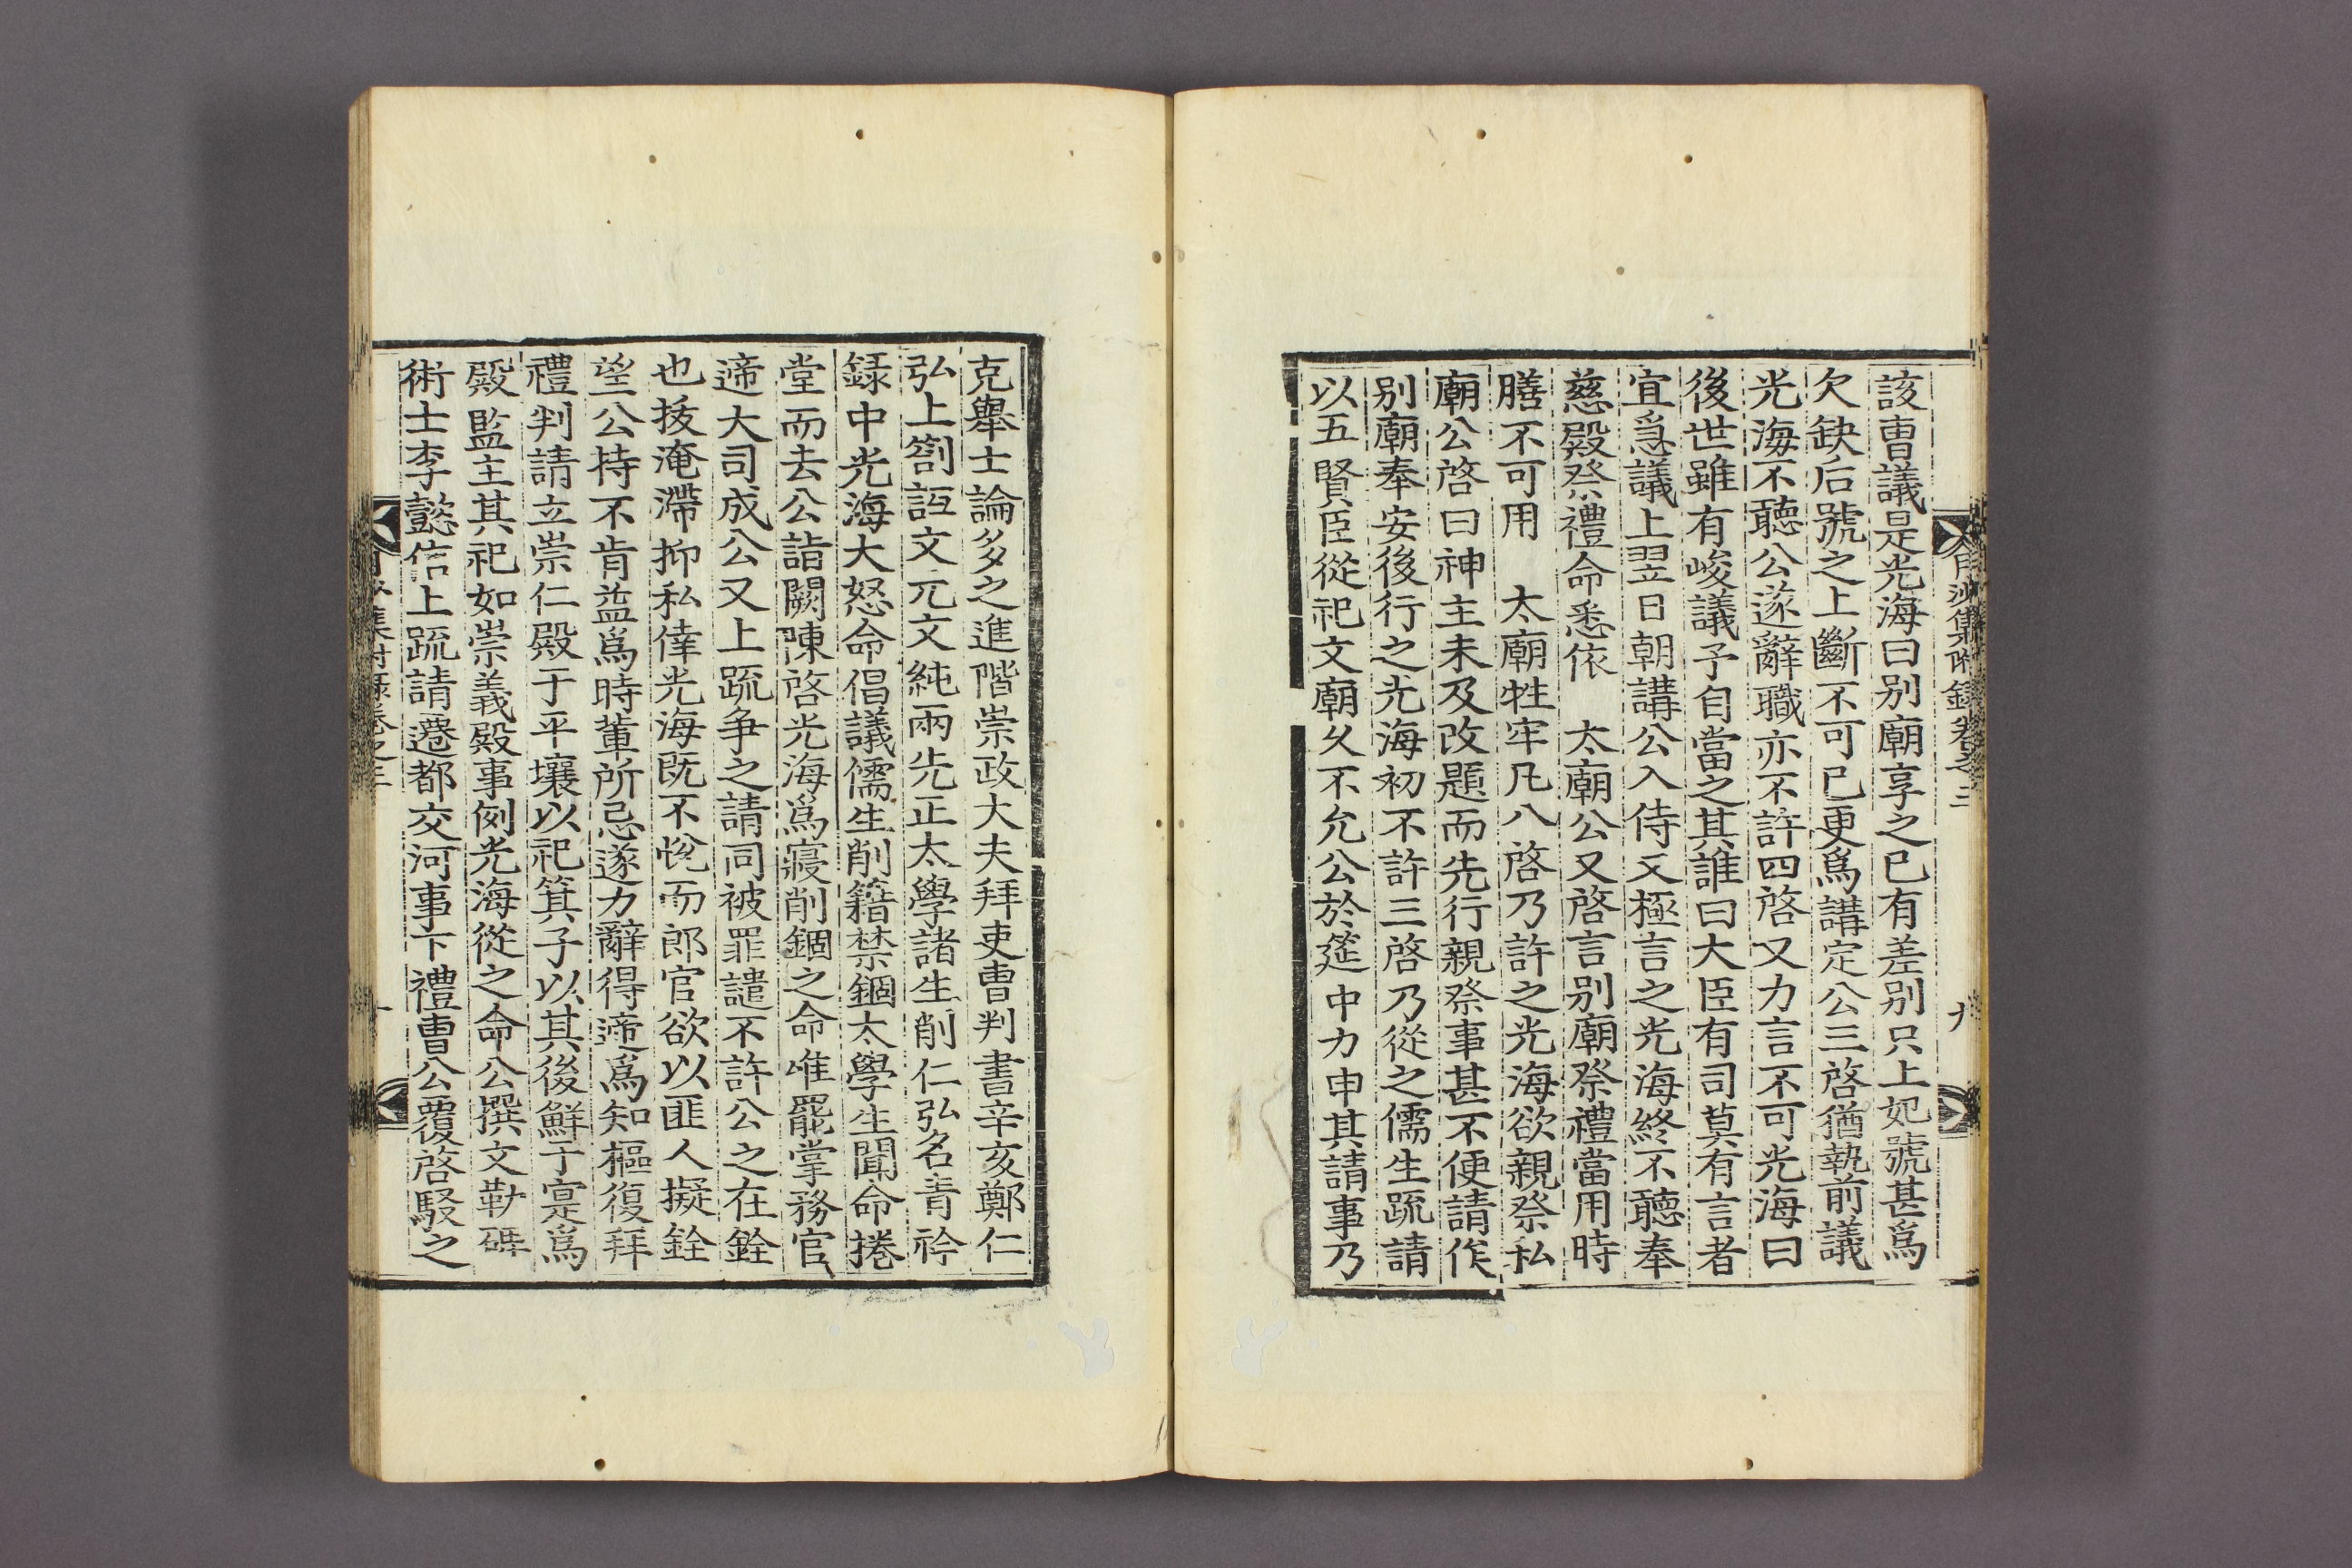 月沙集附錄卷之三
九
該曺議是光海曰别廟享之已有差别只上妃號甚爲
欠缺后號之上斷不可已更爲講定公三啓猶執前議
光海不聽公遂辭職亦不許四啓又力言不可光海曰
後世雖有峻議予自當之其誰曰大臣有司莫有言者
宜爲議上翌日朝講公入侍又極言之光海終不聽奉
慈殿祭禮命悉依　太廟公又啓言别廟祭禮當用時
膳不可用　太廟牲牢凡八啓乃許之光海欲親祭私
廟公啓曰神主未及改題而先行親祭事甚不便請俟
别廟奉安後行之光海初不許三啓乃從之儒生疏請
以五賢臣從祀文廟久不允公於筵中力申其請事乃
克擧士論多之進階崇政大夫拜吏曹判書辛亥鄭仁
弘上箚詆文元文純兩先正太學諸生削仁弘名靑衿
録中光海大怒命倡議儒生削籍禁錮太學生聞命捲
堂而去公詣闕陳啓光海爲寢削錮之命唯罷掌務官
遞大司成公又上疏争之請同被罪譴不許公之在銓
也拔淹滯抑私倖光海旣不悅而郎官欲以匪人擬銓
望公持不肯益爲時輩所忌遂力辭得遞爲知樞復拜
禮判請立崇仁殿于平壤以祀箕子以其後鮮于寔爲
殿監主其祀如崇義殿事例光海從之命公撰文勒碑
術士李懿信上疏請遷都交河事下禮曹公覆啓駁之
月沙集附錄卷之三